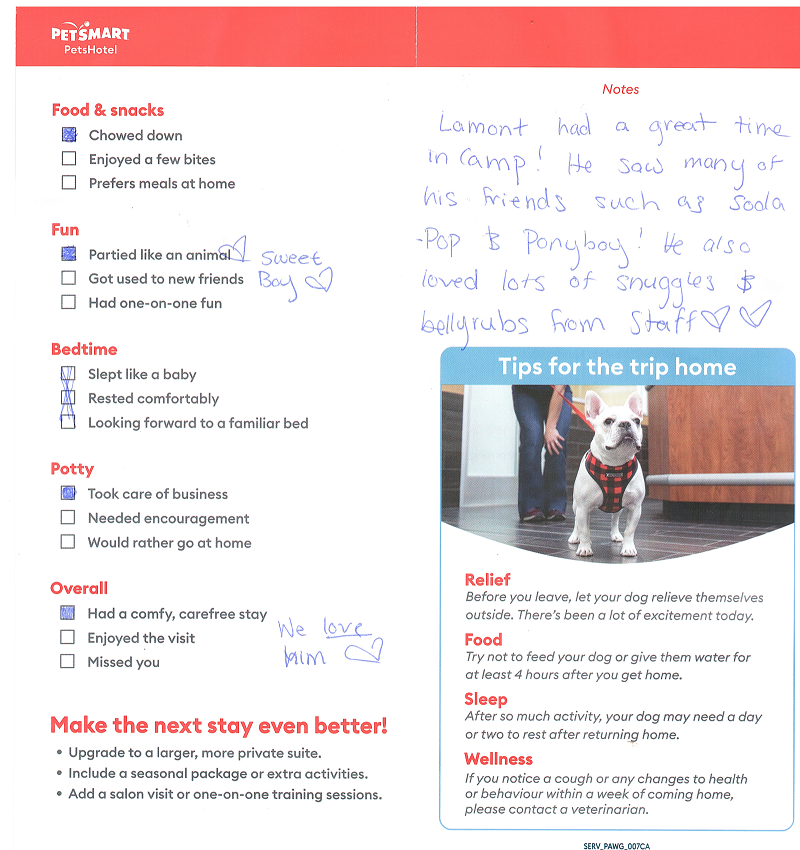 PETSMART
PetsHotel
Food & snacks
Chowed down
Enjoyed a few bites
Prefers meals at home
Fun
Partied like an animal
Got used to new friends
Had one-on-one fun
Sweet
Boy
Bedtime
Slept like a baby
Rested comfortably
Looking forward to a familiar bed
Potty
Took care of business
Needed encouragement
Would rather go at home
Overall
Had a comfy, carefree stay
Enjoyed the visit
Missed you
We love
him
Make the next stay even better!
• Upgrade to a larger, more private suite.
• Include a seasonal package or extra activities.
• Add a salon visit or one-on-one training sessions.
Notes
Lamont had a great time
in Camp! He saw many of
his friends such as Soda
-Pop & Ponyboy! He also
loved lots of snuggles &
bellyrubs from Staff
Tips for the trip home
Relief
Before you leave, let your dog relieve themselves
outside. There's been a lot of excitement today.
Food
Try not to feed your dog or give them water for
at least 4 hours after you get home.
Sleep
After so much activity, your dog may need a day
or two to rest after returning home.
Wellness
If you notice a cough or any changes to health
or behaviour within a week of coming home,
please contact a veterinarian.
SERV_PAWG_007CA